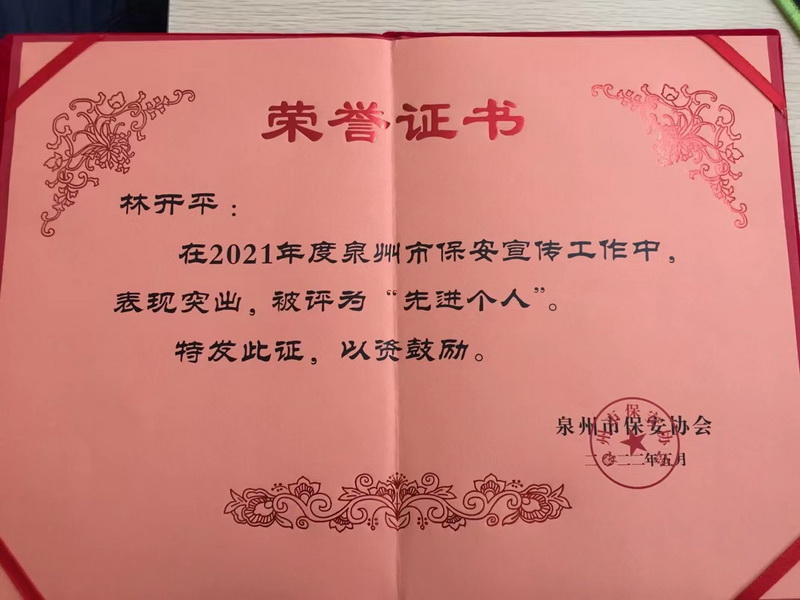 荣誉证书
林开平：
在2021年度泉州市保安宣传工作中，
表现突出，被评为“先进个人”。
特发此证，以资鼓励。
泉州市保安协会
二〇二二年五月